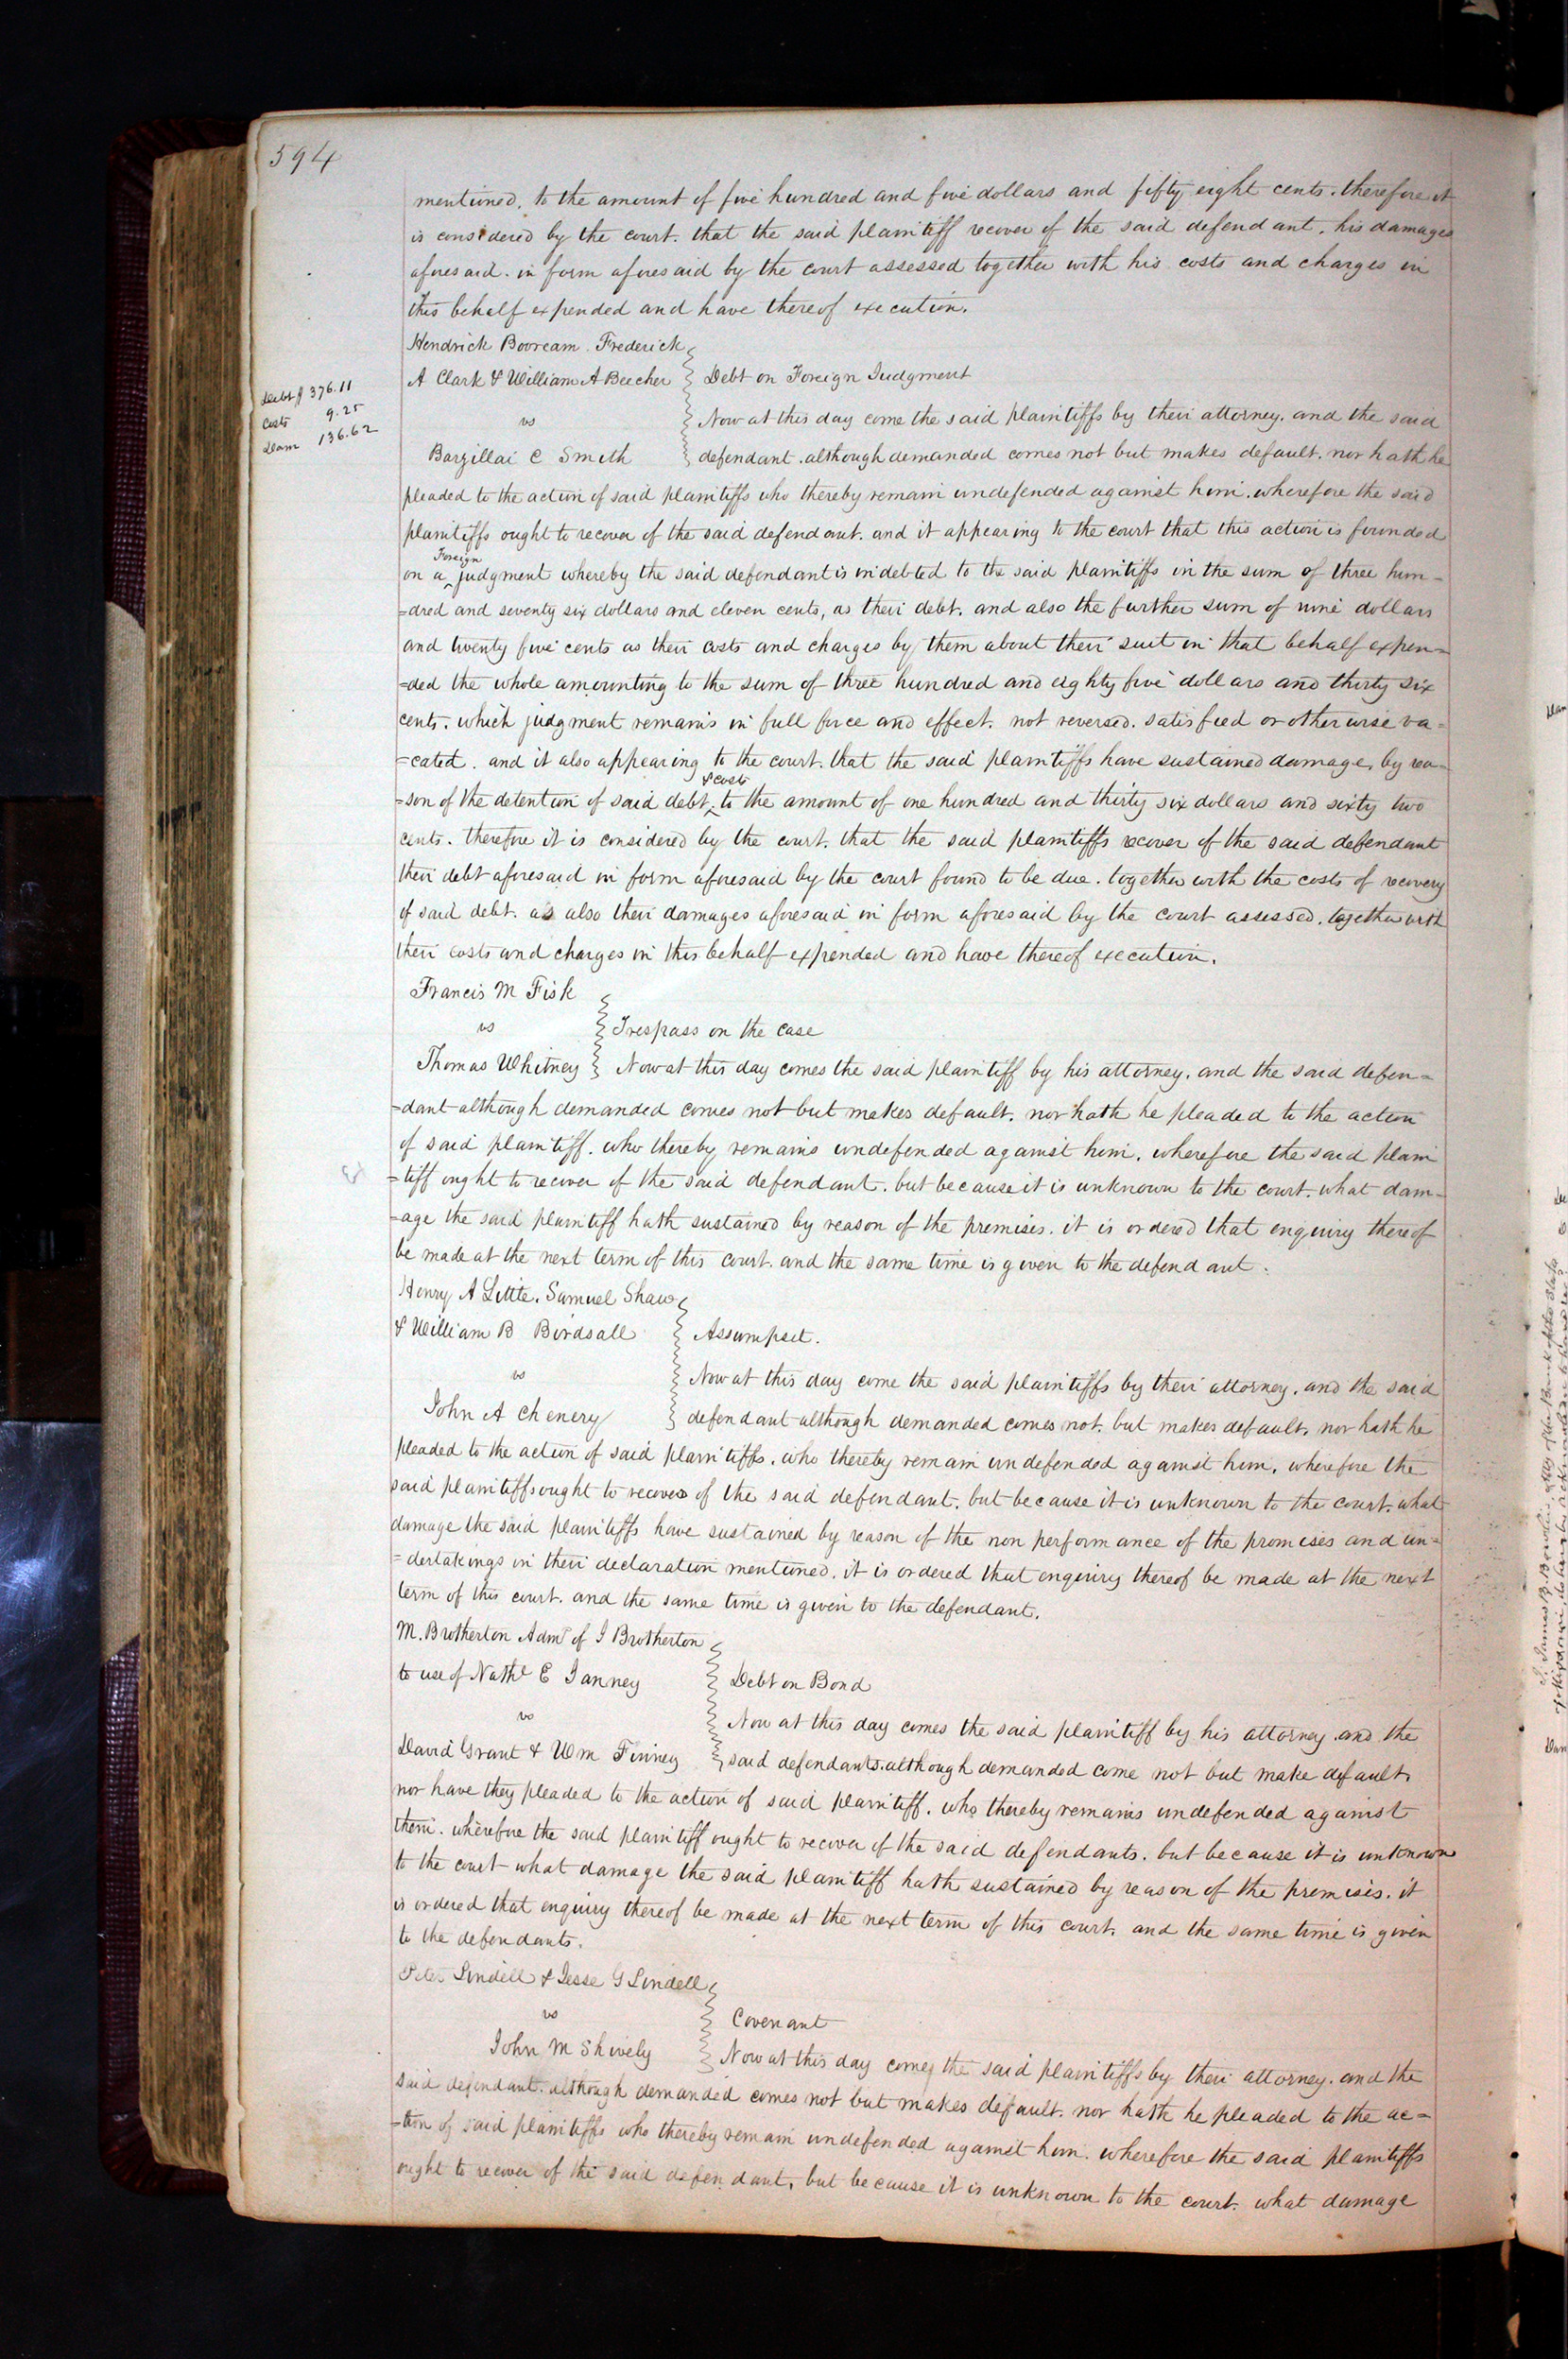 594
mentioned. to the amount of five hundred and five dollars and fifty eight cents. therefore it
is considered by the court. that the said plaintiff recover of the said defendant. his damages
aforesaid. in form aforesaid by the court assessed together with his costs and charges in
this behalf expended and have thereof execution.
Hendrick Booream. Frederick
A Clark & William A Beecher
vs
Barzillai C Smith
Debt $ 376.11
Costs 9.25
Dam 136.62
Debt on Foreign Judgment
Now at this day come the said plaintiffs by their attorney. and the said
defendant. although demanded comes not but makes default. nor hath he
pleaded to the action of said plaintiffs who thereby remain undefended against him. wherefore the said
plaintiffs ought to recover of the said defendant. and it appearing to the court that this action is founded
on a Foreign judgment whereby the said defendant is indebted to the said plaintiffs in the sum of three hun-
=dred and seventy six dollars and eleven cents, as their debt. and also the further sum of nine dollars
and twenty five cents as their costs and charges by them about their suit in that behalf expen=
=ded the whole amounting to the sum of three hundred and eighty five dollars and thirty six
cents. which judgment remains in full force and effect. not reversed. satisfied or otherwise va=
=cated. and it also appearing to the court. that the said plaintiffs have sustained damage, by rea=
=son of the detention of said debt & costs to the amount of one hundred and thirty six dollars and sixty two
cents. therefore it is considered by the court. that the said plaintiffs recover of the said defendant
their debt aforesaid in form aforesaid by the court found to be due. together with the costs of recovery
of said debt. as also their damages aforesaid in form aforesaid by the court assessed. together with
their costs and charges in this behalf expended and have thereof execution.
Francis M Fisk
vs
Thomas Whitney
Trespass on the case
Now at this day comes the said plaintiff by his attorney. and the said defen=
=dant although demanded comes not but makes default. nor hath he pleaded to the action
of said plaintiff. who thereby remains undefended against him. wherefore the said plain
=tiff ought to recover of the said defendant. but because it is unknown to the court. what dam=
=age the said plaintiff hath sustained by reason of the premises. it is ordered that enquiry thereof
be made at the next term of this court. and the same time is given to the defendant.
Henry A Little. Samuel Shaw
& William B Birdsall
vs
John A Chenery
Assumpsit.
Now at this day come the said plaintiffs by their attorney. and the said
defendant although demanded comes not. but makes default. nor hath he
pleaded to the action of said plaintiffs. who thereby remain undefended against him. wherefore the
said plaintiffs ought to recover of the said defendant. but because it is unknown to the court. what
damage the said plaintiffs have sustained by reason of the non performance of the promises and un=
=dertakings in their declaration mentioned. it is ordered that enquiry thereof be made at the next
term of this court. and the same time is given to the defendant.
M. Brotherton Admr of J Brotherton
to use of Nathl E Janney
vs
David Grant & Wm Finney
Debt on Bond
Now at this day comes the said plaintiff by his attorney. and the
said defendants. although demanded come not but make default.
nor have they pleaded to the action of said plaintiff. who thereby remains undefended against
them. wherefore the said plaintiff ought to recover of the said defendants. but because it is unknown
to the court what damage the said plaintiff hath sustained by reason of the premises. it
is ordered that enquiry thereof be made at the next term of this court. and the same time is given
to the defendants.
Peter Lindell & Jesse G Lindell
vs
John M Shively
Covenant
Now at this day comes the said plaintiffs by their attorney. and the
said defendant. although demanded comes not but makes default. nor hath he pleaded to the ac=
=tion of said plaintiffs who thereby remain undefended against him. wherefore the said plaintiffs
ought to recover of the said defendant. but because it is unknown to the court. what damage